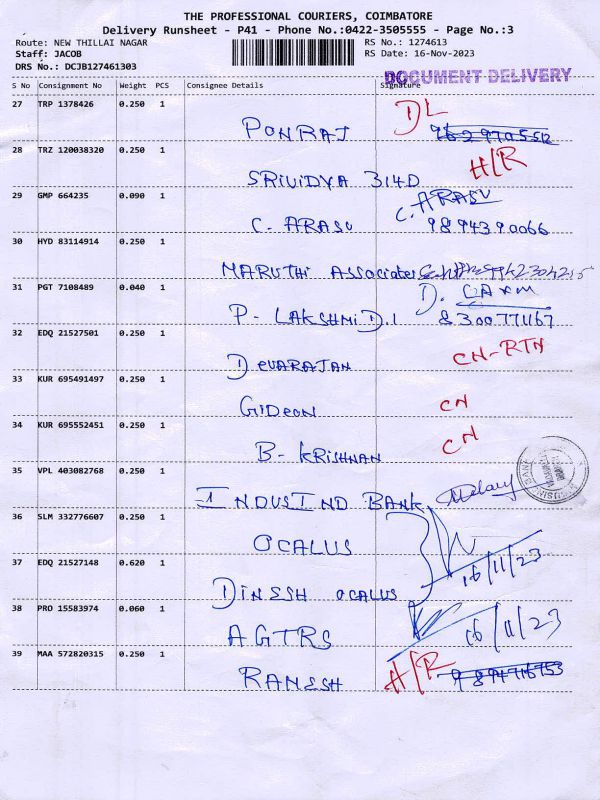 THE PROFESSIONAL COURIERS, COIMBATORE
Delivery Runsheet - P41 - Phone No.:0422-3505555 - Page No.:3
Route: NEW THILLAI NAGAR RS No.: 1274613
Staff: JACOB RS Date: 16-Nov-2023
DRS No.: DCJB127461303
DOCUMENT DELIVERY
S No Consignment No Weight PCS Consignee Details Signature
27 TRP 1378426 0.250 1 DL
PONRAJ
28 TRZ 120038320 0.250 1 H/R
SRIVIDYA 314D
29 GMP 664235 0.090 1 C. ARASU
C. ARASU 9894390066
30 HYD 83114914 0.250 1
MARUTHI Associates
31 PGT 7108489 0.040 1 D.
P- LAKSHMI D.1 8300771167
32 EDQ 21527501 0.250 1 CN-RTN
DEVARAJAN
33 KUR 695491497 0.250 1 CN
GIDEON
34 KUR 695552451 0.250 1 CN
B- KRISHNAN
35 VPL 403082768 0.250 1
INDUSIND BANK
36 SLM 332776607 0.250 1
OCALUS
37 EDQ 21527148 0.620 1 16/11/23
DINESH OCALUS
38 PRO 15583974 0.060 1 16/11/23
AGTRS
39 MAA 572820315 0.250 1 H/R
RANESH 9894716753